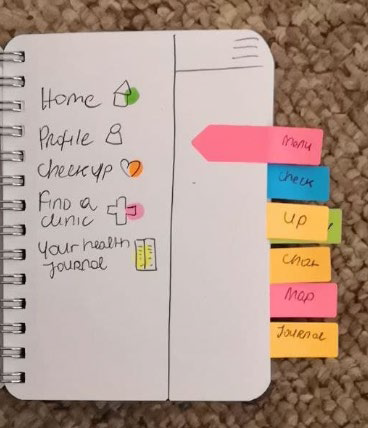 Home
Profile
checkup
Find a
clinic
Your health
Journal
Menu
check
UP
Chat
Map
Journal